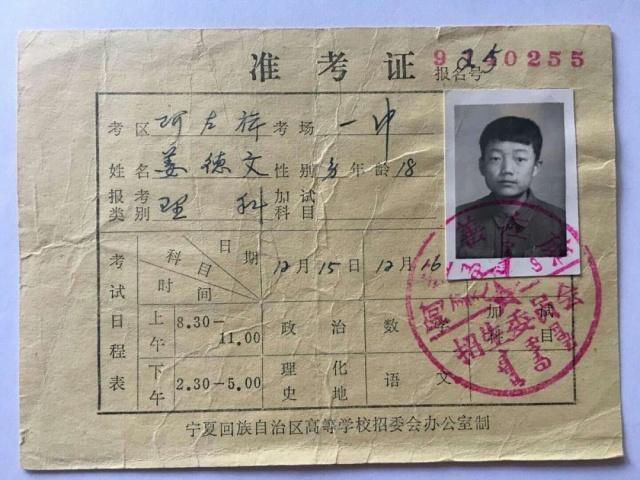 准考证 9240255
报名号 25
考区 阿左旗 考场 一中
姓名 姜德文 性别 男 年龄 18
报考类别 理科 加试科目
考试日程表 科目 日期 时间 12月15日 12月16
上午 8.30—11.00 政治 数学 加试科目
下午 2.30—5.00 理化 史地 语文
招生委员会
宁夏回族自治区高等学校招委会办公室制